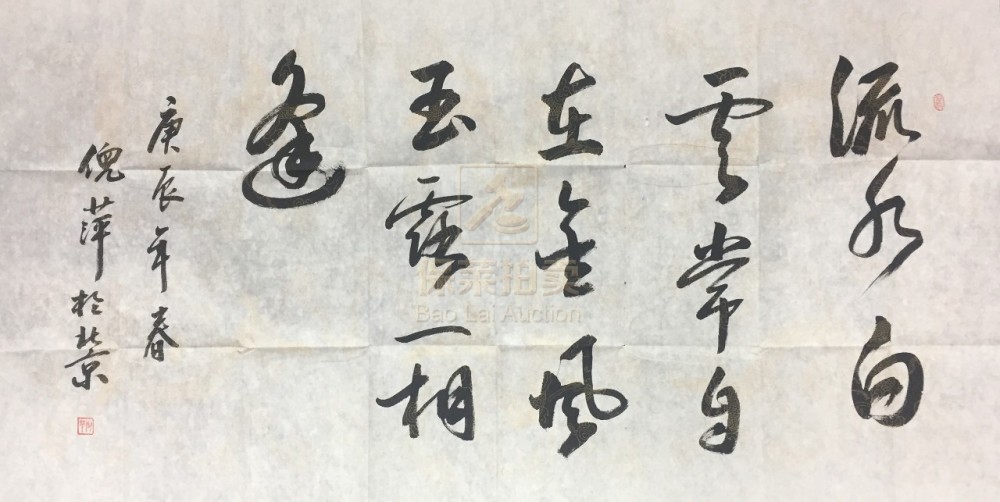 流水白
雲常自
在金風
玉露一相
逢
庚辰年春
倪萍於北京
保萊拍卖
Bao Lai Auction